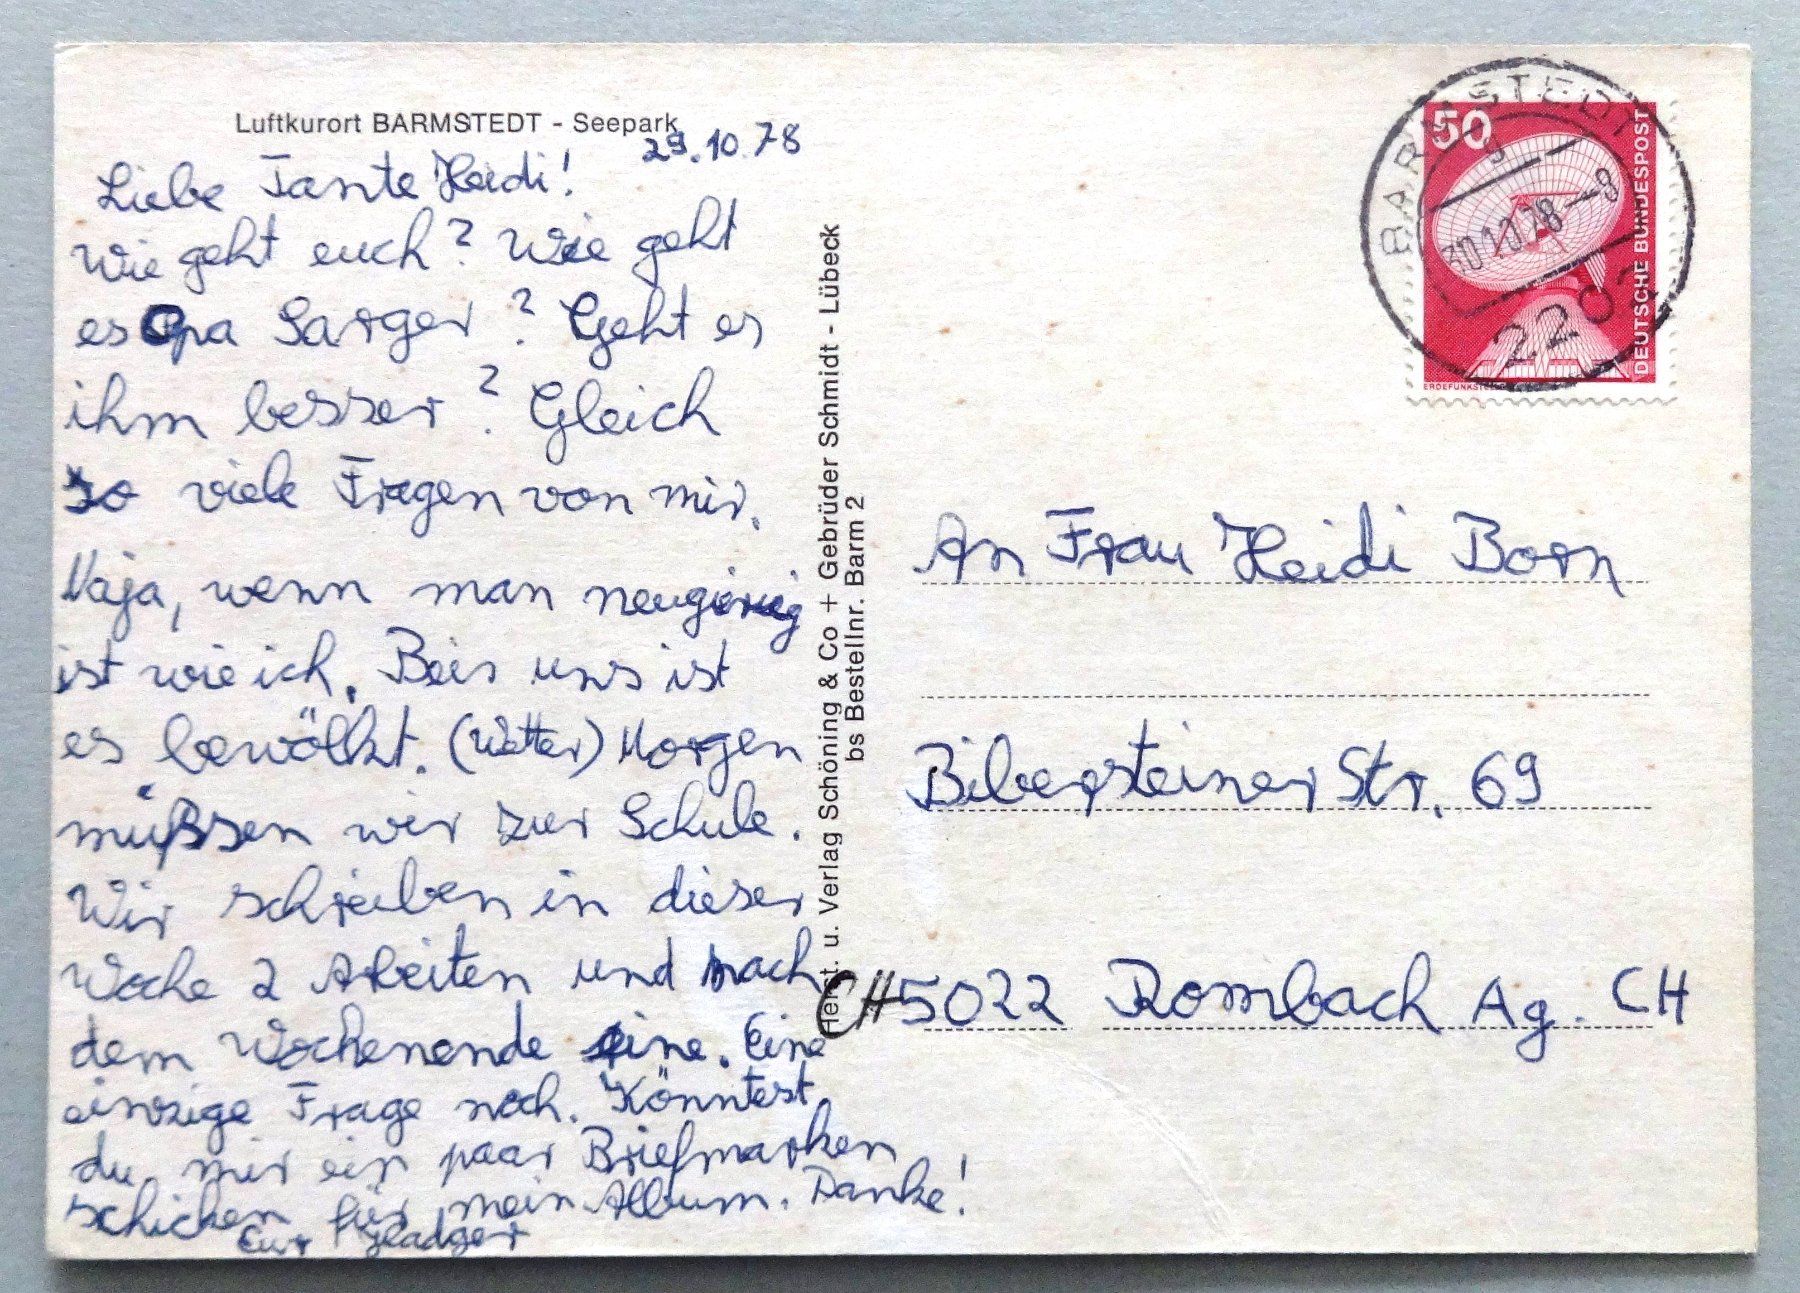 Luftkurort BARMSTEDT - Seepark
29.10.78
Liebe Tante Heidi!
Wie geht euch? Wie geht
es Opa Sarger? Geht es
ihm besser? Gleich
so viele Fragen von mir.
Naja, wenn man neugierig
ist wie ich. Beis uns ist
es bewölkt. (Wetter) Morgen
müßsen wir zur Schule.
Wir schreiben in dieser
Woche 2 Arbeiten und nach
dem Wochenende eine. Eine
einzige Frage noch. Könntest
du mir ein paar Briefmarken
schicken für mein Album. Danke!
Eur
Herst. u. Verlag Schöning & Co + Gebrüder Schmidt - Lübeck
bs Bestellnr. Barm 2
BARMSTEDT
30.10.78-8
220
50
DEUTSCHE BUNDESPOST
An Frau Heidi Born
Bibersteiner Str. 69
CH 5022 Rombach Ag. CH